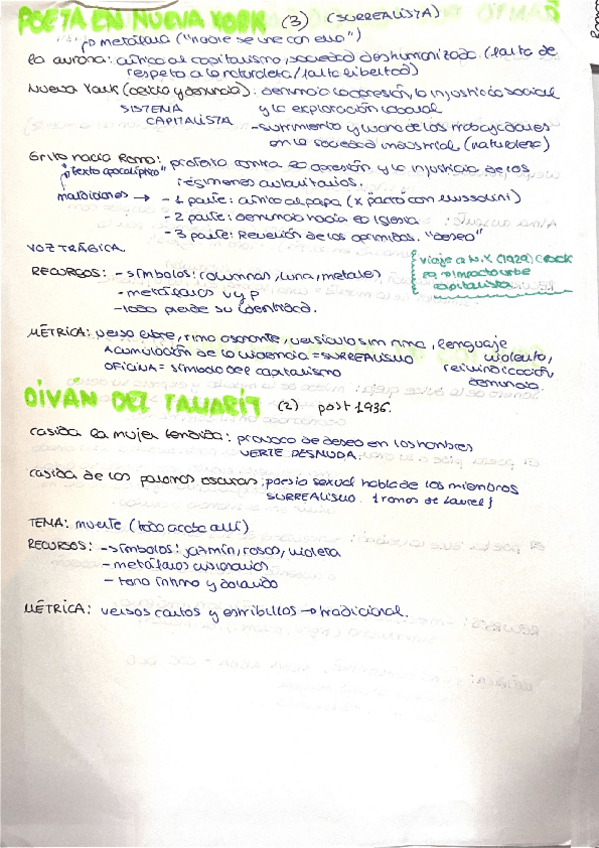 POETA EN NUEVA YORK (3) (SURREALISTA)
↳ metáfora ("nadie se une con ello")
La aurora: crítica al capitalismo, sociedad deshumanizada. (falta de
respeto a la naturaleza / falta libertad)
Nueva York (oficina y denuncia): denuncia la opresión, la injusticia social
SISTEMA y la explotación laboral
CAPITALISTA - sufrimiento y lloro de los trabajadores
en la sociedad industrial (naturaleza)
Grito hacia Roma: protesta contra la opresión y la injusticia de los
"texto apocalíptico" regímenes autoritarios.
maldiciones → - 1 parte: crítica al papa (x pacto con Mussolini)
- 2 parte: denuncia hacia la Iglesia
- 3 parte: Rebelión de los oprimidos. "deseo"
VOZ TRÁGICA.
viaje a N.Y. (1929) Crack
impacto
capitalista
RECURSOS: - símbolos: columnas, luna, metales
- metáforas v y p
- todo pierde su identidad.
MÉTRICA: verso libre, rima asonante, versículo sin rima, lenguaje
Acumulación de la violencia = SURREALISMO violento,
OFICINA = símbolo del capitalismo reivindicación,
denuncia.
DIVÁN DEL TAMARIT (2) post 1936.
casida la mujer tendida: provoca de deseo en los hombres
VERTE DESNUDA.
casida de las palomas oscuras: poesía sexual habla de los miembros
SURREALISMO. {ramas de laurel}
TEMA: muerte (todo acaba allí)
RECURSOS: - símbolos: jazmín, rosas, violeta
- metáforas
- tono íntimo y dolorido
MÉTRICA: versos cortos y estribillos → tradicional.